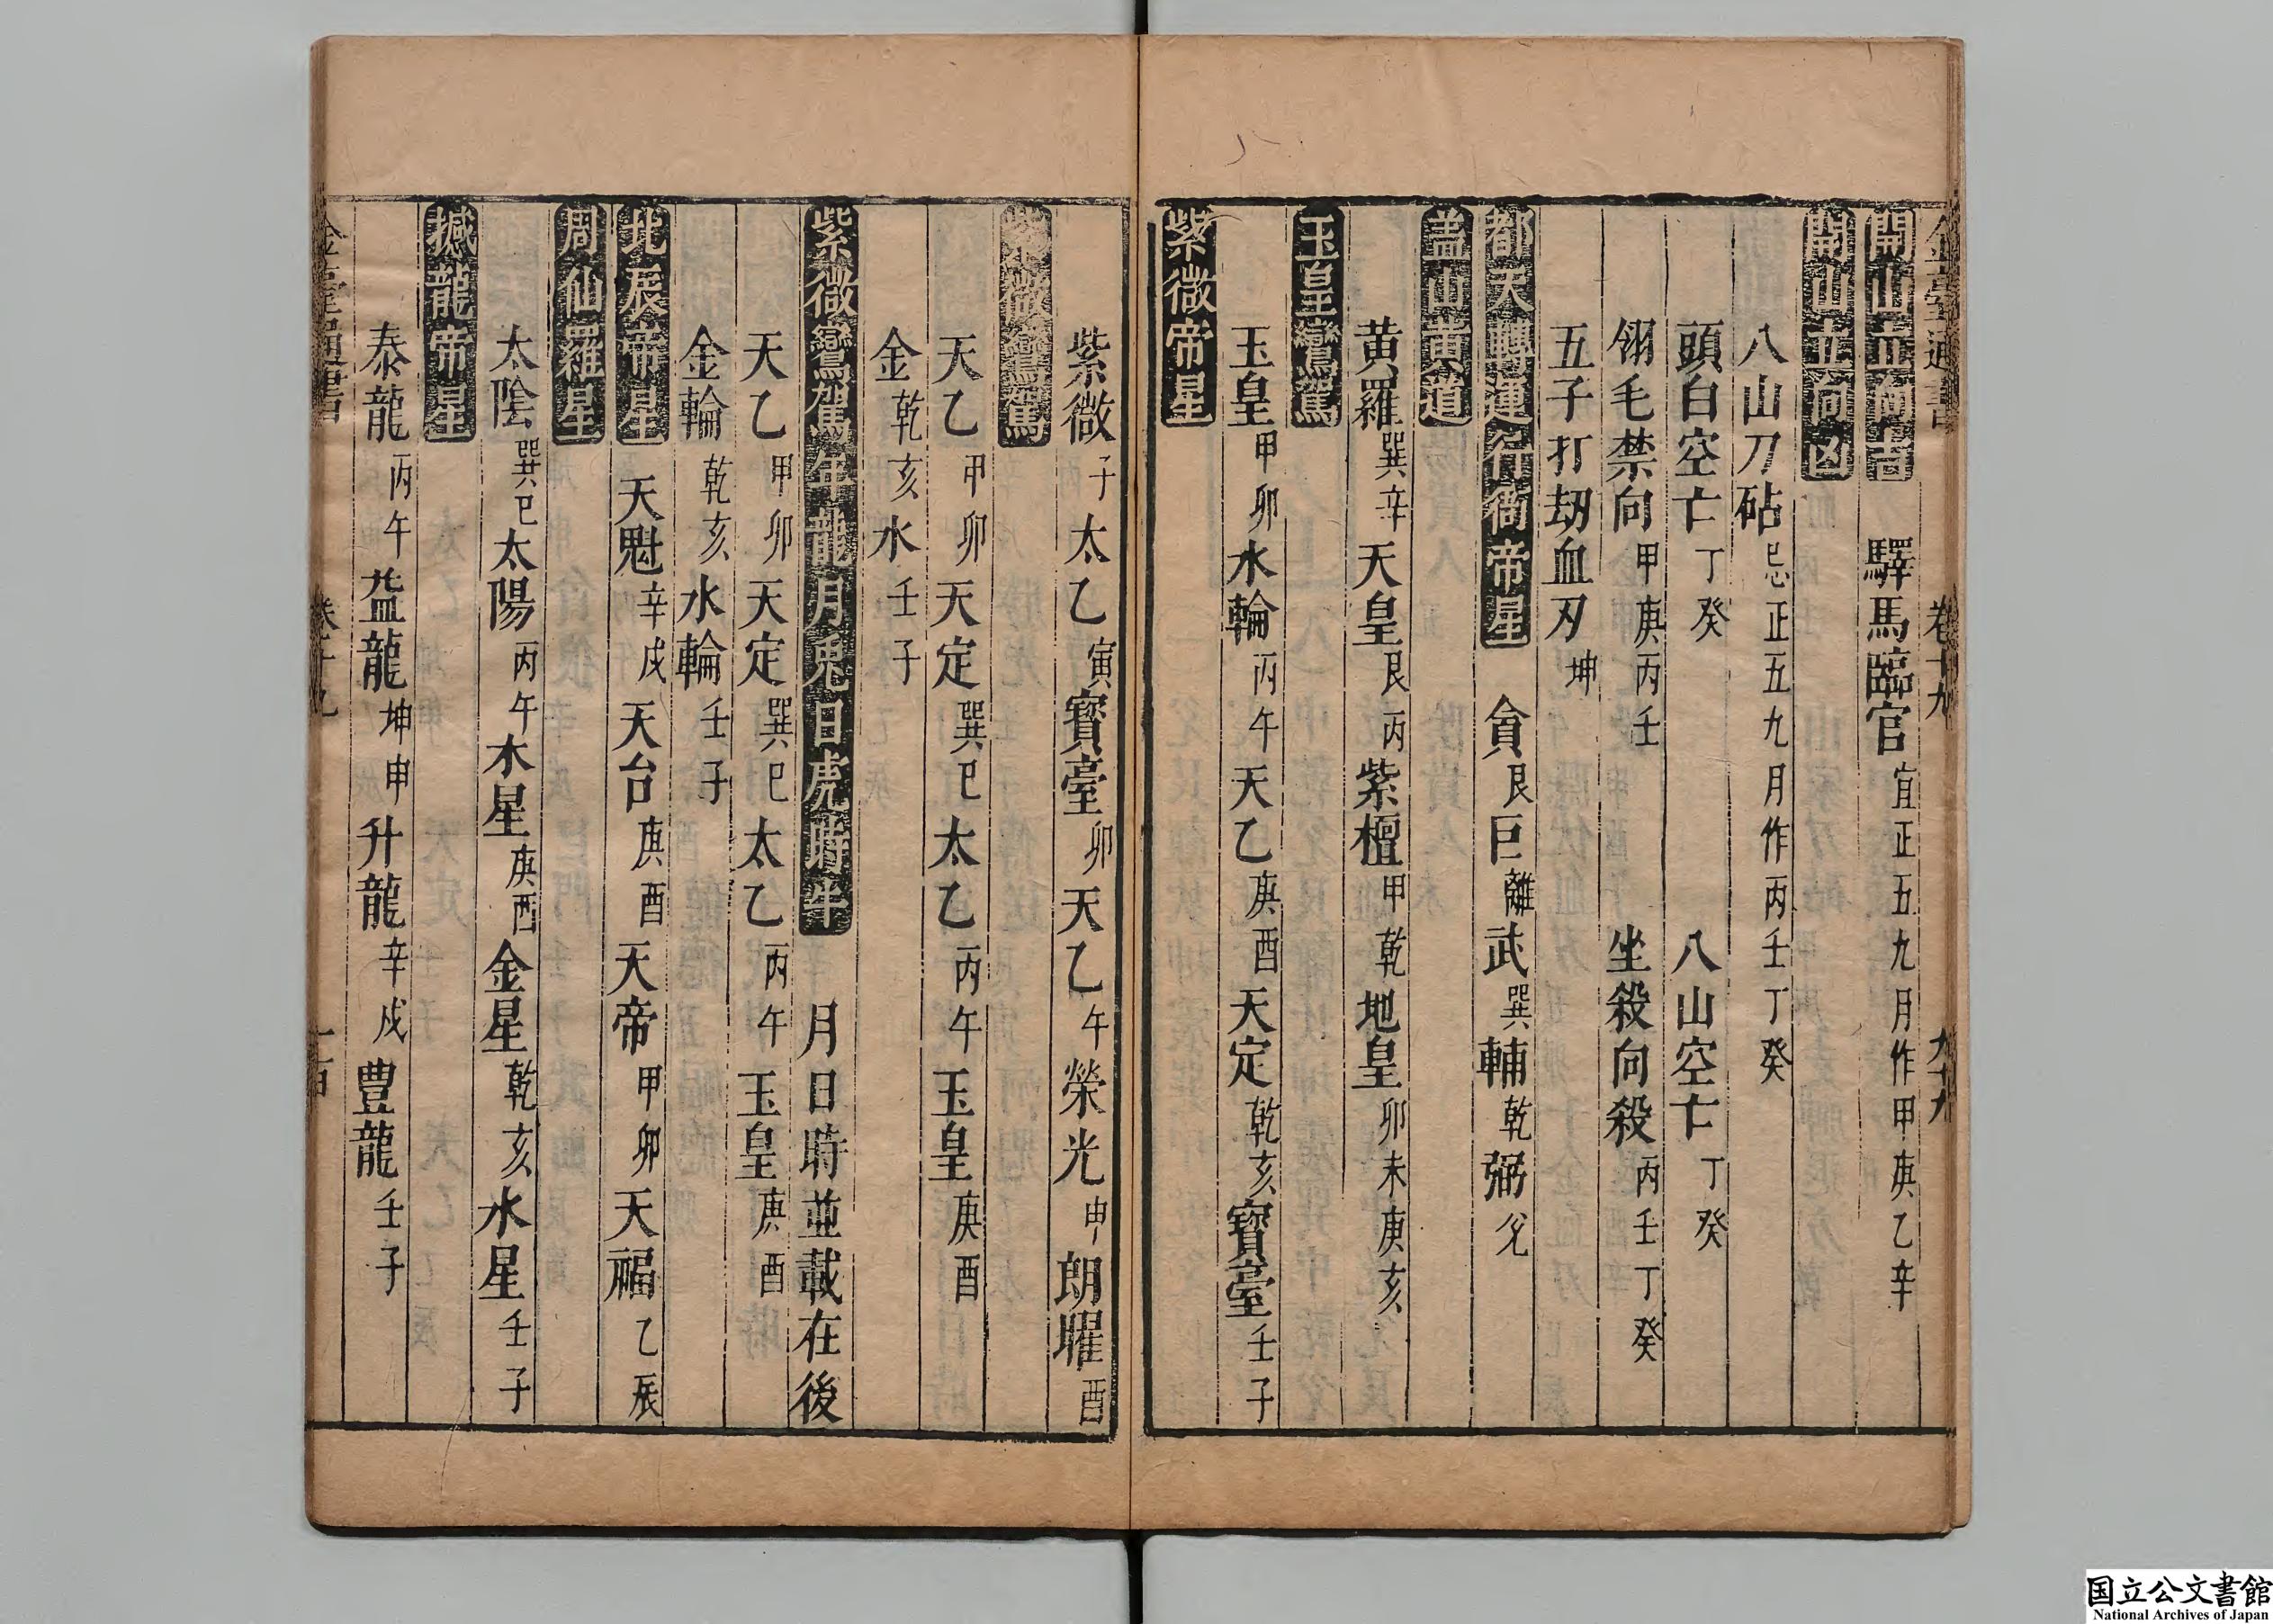 卷十九 九十九
開山立向吉 驛馬臨官宜正五九月作甲庚乙辛
開山立向凶
八山刀砧忌正五九月作丙壬丁癸
頭白空亡丁癸 八山空亡丁癸
翎毛禁向甲庚丙壬 坐殺向殺丙壬丁癸
五子打刼血刃坤
都天轉運行衙帝星 貪艮巨離武巽輔乾弼兌
盖山黄道
黄羅巽辛天皇艮丙紫檀甲乾地皇卯未庚亥
玉皇鑾駕
玉皇甲卯水輪丙午天乙庚酉天定乾亥寳臺壬子
紫微帝星
紫微子太乙寅寳臺卯天乙午榮光申朗曜酉
紫微鑾駕
天乙甲卯天定巽巳太乙丙午玉皇庚酉
金乾亥水壬子
紫微鸞駕年龍月兎日虎時牛 月日時並載在後
天乙甲卯天定巽巳太乙丙午玉皇庚酉
金輪乾亥水輪壬子
北辰帝星 天魁辛戌天台庚酉天帝甲卯天福乙辰
周仙羅星
太陰巽巳太陽丙午木星庚酉金星乾亥水星壬子
撼龍帝星
泰龍丙午益龍坤申升龍辛戌豊龍壬子
国立公文書館
National Archives of Japan